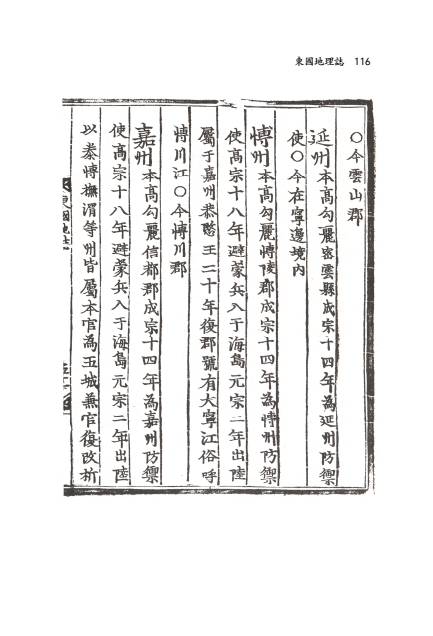 東國地理誌 116
○今雲山郡
延州本高勾麗密雲縣成宗十四年為延州防禦
使○今在寧邊境内
博州本高勾麗博陵郡成宗十四年為博州防禦
使高宗十八年避蒙兵入于海島元宗二年出陸
屬于嘉州恭愍王二十年復郡號有大寧江俗呼
博川江○今博川郡
嘉州本高勾麗信都郡成宗十四年為嘉州防禦
使高宗十八年避蒙兵入于海島元宗二年出陸
以泰博撫渭等州皆屬本官為五城兼官復改析
東國地